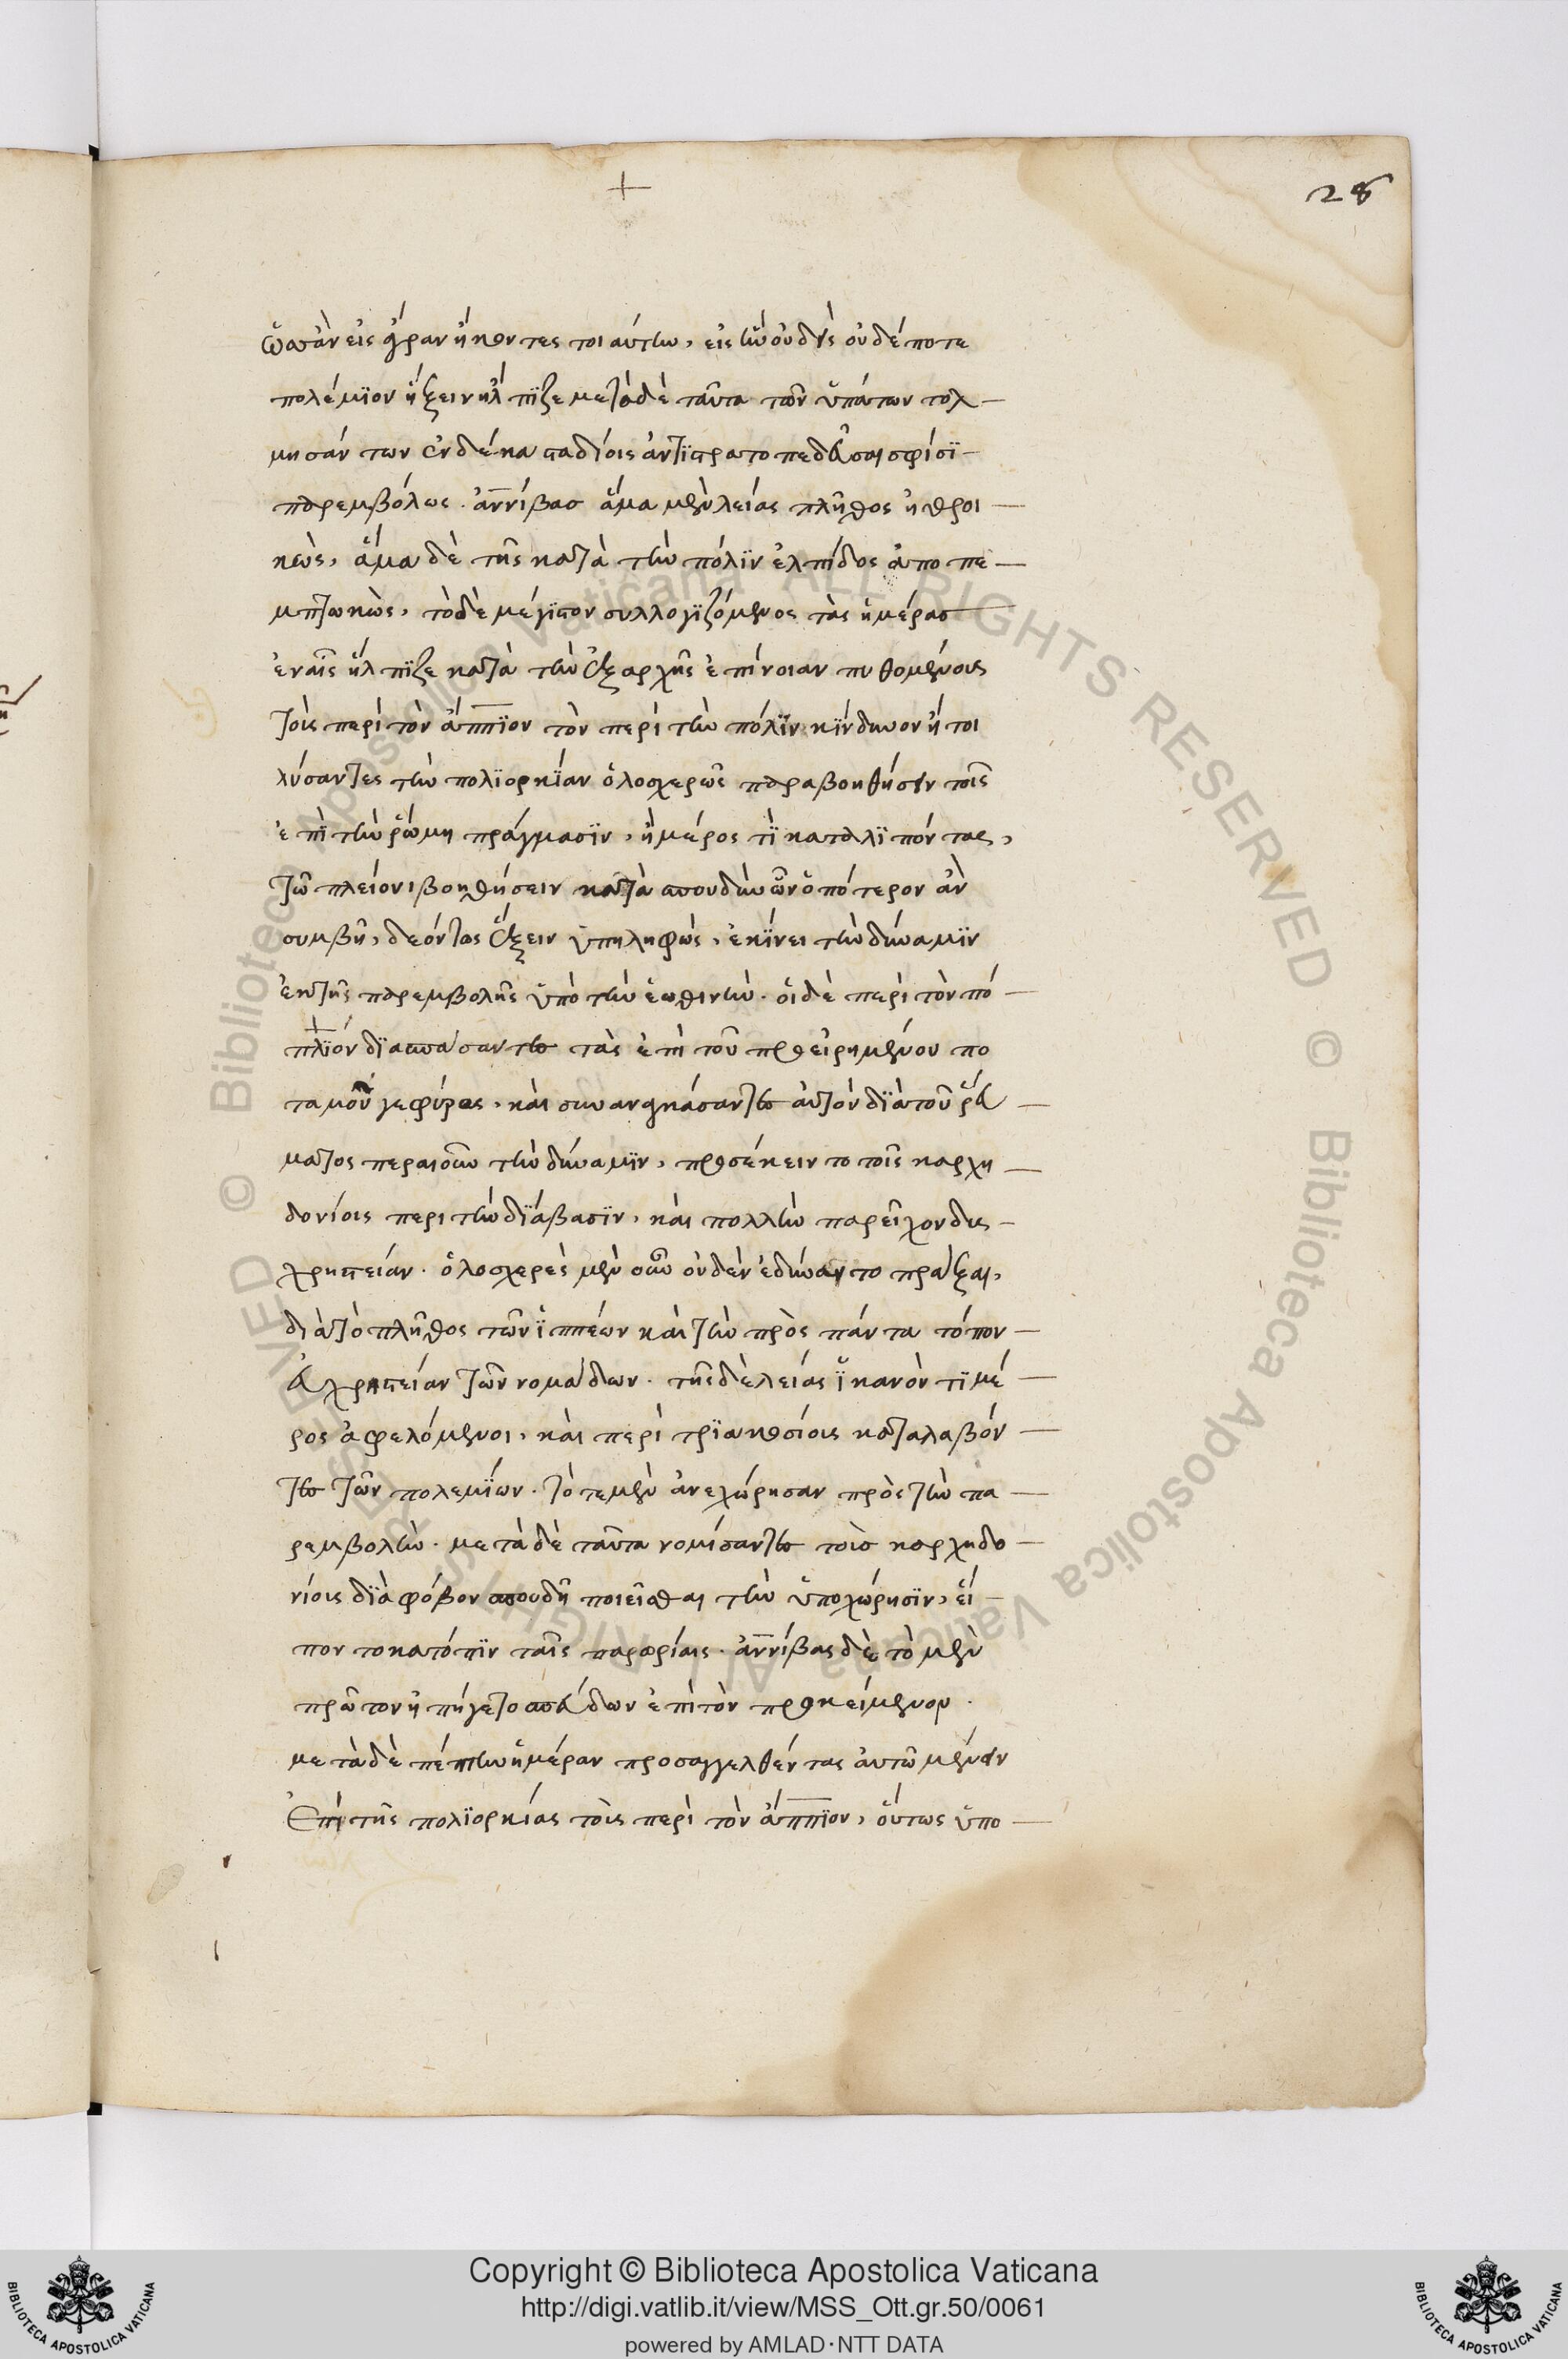 28
ὡσὰν εἰς χώραν ἥκοντες τοιαύτην, εἰς ἣν οὐδεὶς οὐδέποτε
πολέμϊον ἥξειν ἤλπϊζε μετὰ δὲ ταῦτα τῶν ὑπάτων τολ
μησάντων ἐν δέκα σταδίοις ἀντϊστρατοπεδεῦσαι σφίσϊ
παρεμβόλως. ἀννίβασ ἅμα μὲν λείας πλῆθος ἠθροι
κὼς, ἅμα δὲ τῆς κατὰ τὴν πόλϊν ἐλπίδος ἀποπε
μπτωκὼς, τὸ δὲ μέγϊστον συλλογϊζόμενος τὰς ἡμέρασ
ἐν αἷς ἤλπϊζε κατὰ τὴν ἐξ αρχῆς ἐπίνοιαν πυθομένους
τοὺς περὶ τὸν ἄππϊον τὸν περὶ τὴν πόλϊν κϊνδυνον ἤτοι
λύσαντες τὴν πολϊορκϊαν ὁλοσχερῶς παραβοηθήσειν τοῖς
ἐπὶ τὴν ῥώμη πράγμασϊν, ἢ μέρος τὶ καταλϊπόντας,
τῶ πλείονι βοηθήσειν κατὰ σπουδὴν ὧν ὁπότερον ἂν
συμβῆ, δεόντως ἕξειν ὑπηληφὼς, ἐκίνει τὴν δύναμϊν
ἐκ τῆς παρεμβολῆς ὑπὸ τὴν ἑωθινὴν. οἱ δὲ περὶ τὸν πό
πλϊόν δϊασπάσαντες τὰς ἐπὶ τοῦ προειρημένου πο
ταμοῦ γεφύρας, καὶ συναναγκάσαντες αὐτὸν δϊὰ τοῦ ῥεύ
ματος περαιοῦν τὴν δύναμϊν, προσέκειντο τοῖς καρχη
δονίοις περι τὴν δϊάβασϊν, καὶ πολλὴν παρεῖχον δυς
χρηστείαν. ὁλοσχερὲς μὲν οὖν οὐδὲν ἐδύναντο πρᾶξαι,
διὰ τὸ πλῆθος τῶν ἱππέων καὶ τὴν πρὸς πάντα τόπον
εὐχρηστείαν τῶν νομάδων. τῆς δὲ λείας ἱκανόν τϊ μέ
ρος ἀφελόμενοι, καὶ περὶ τρϊακοσίους καταλαβόν
τες τῶν πολεμϊων. τότε μὲν ἀνεχώρησαν πρὸς τὴν πα
ρεμβολὴν. μετὰ δὲ ταῦτα νομίσαντες τοὺσ καρχηδο
νίους δϊὰ φόβον σπουδῆ ποιεῖσθαι τὴν ὑποχώρησϊν, εἵ
ποντο κατόπϊν ταῖς παρωρίαις. ἀννίβας δὲ τὸ μὲν
πρῶτον ἠπήγετο σπεύδων ἐπὶ τὸν προκείμενον.
μετὰ δὲ πέπτην ἡμέραν προσαγγελθέντας αὐτῶ μένειν
ἐπὶ τῆς πολϊορκίας τοὺς περὶ τὸν ἄππϊον, οὕτως ὑπο
Copyright © Biblioteca Apostolica Vaticana
http://digi.vatlib.it/view/MSS_Ott.gr.50/0061
powered by AMLAD·NTT DATA